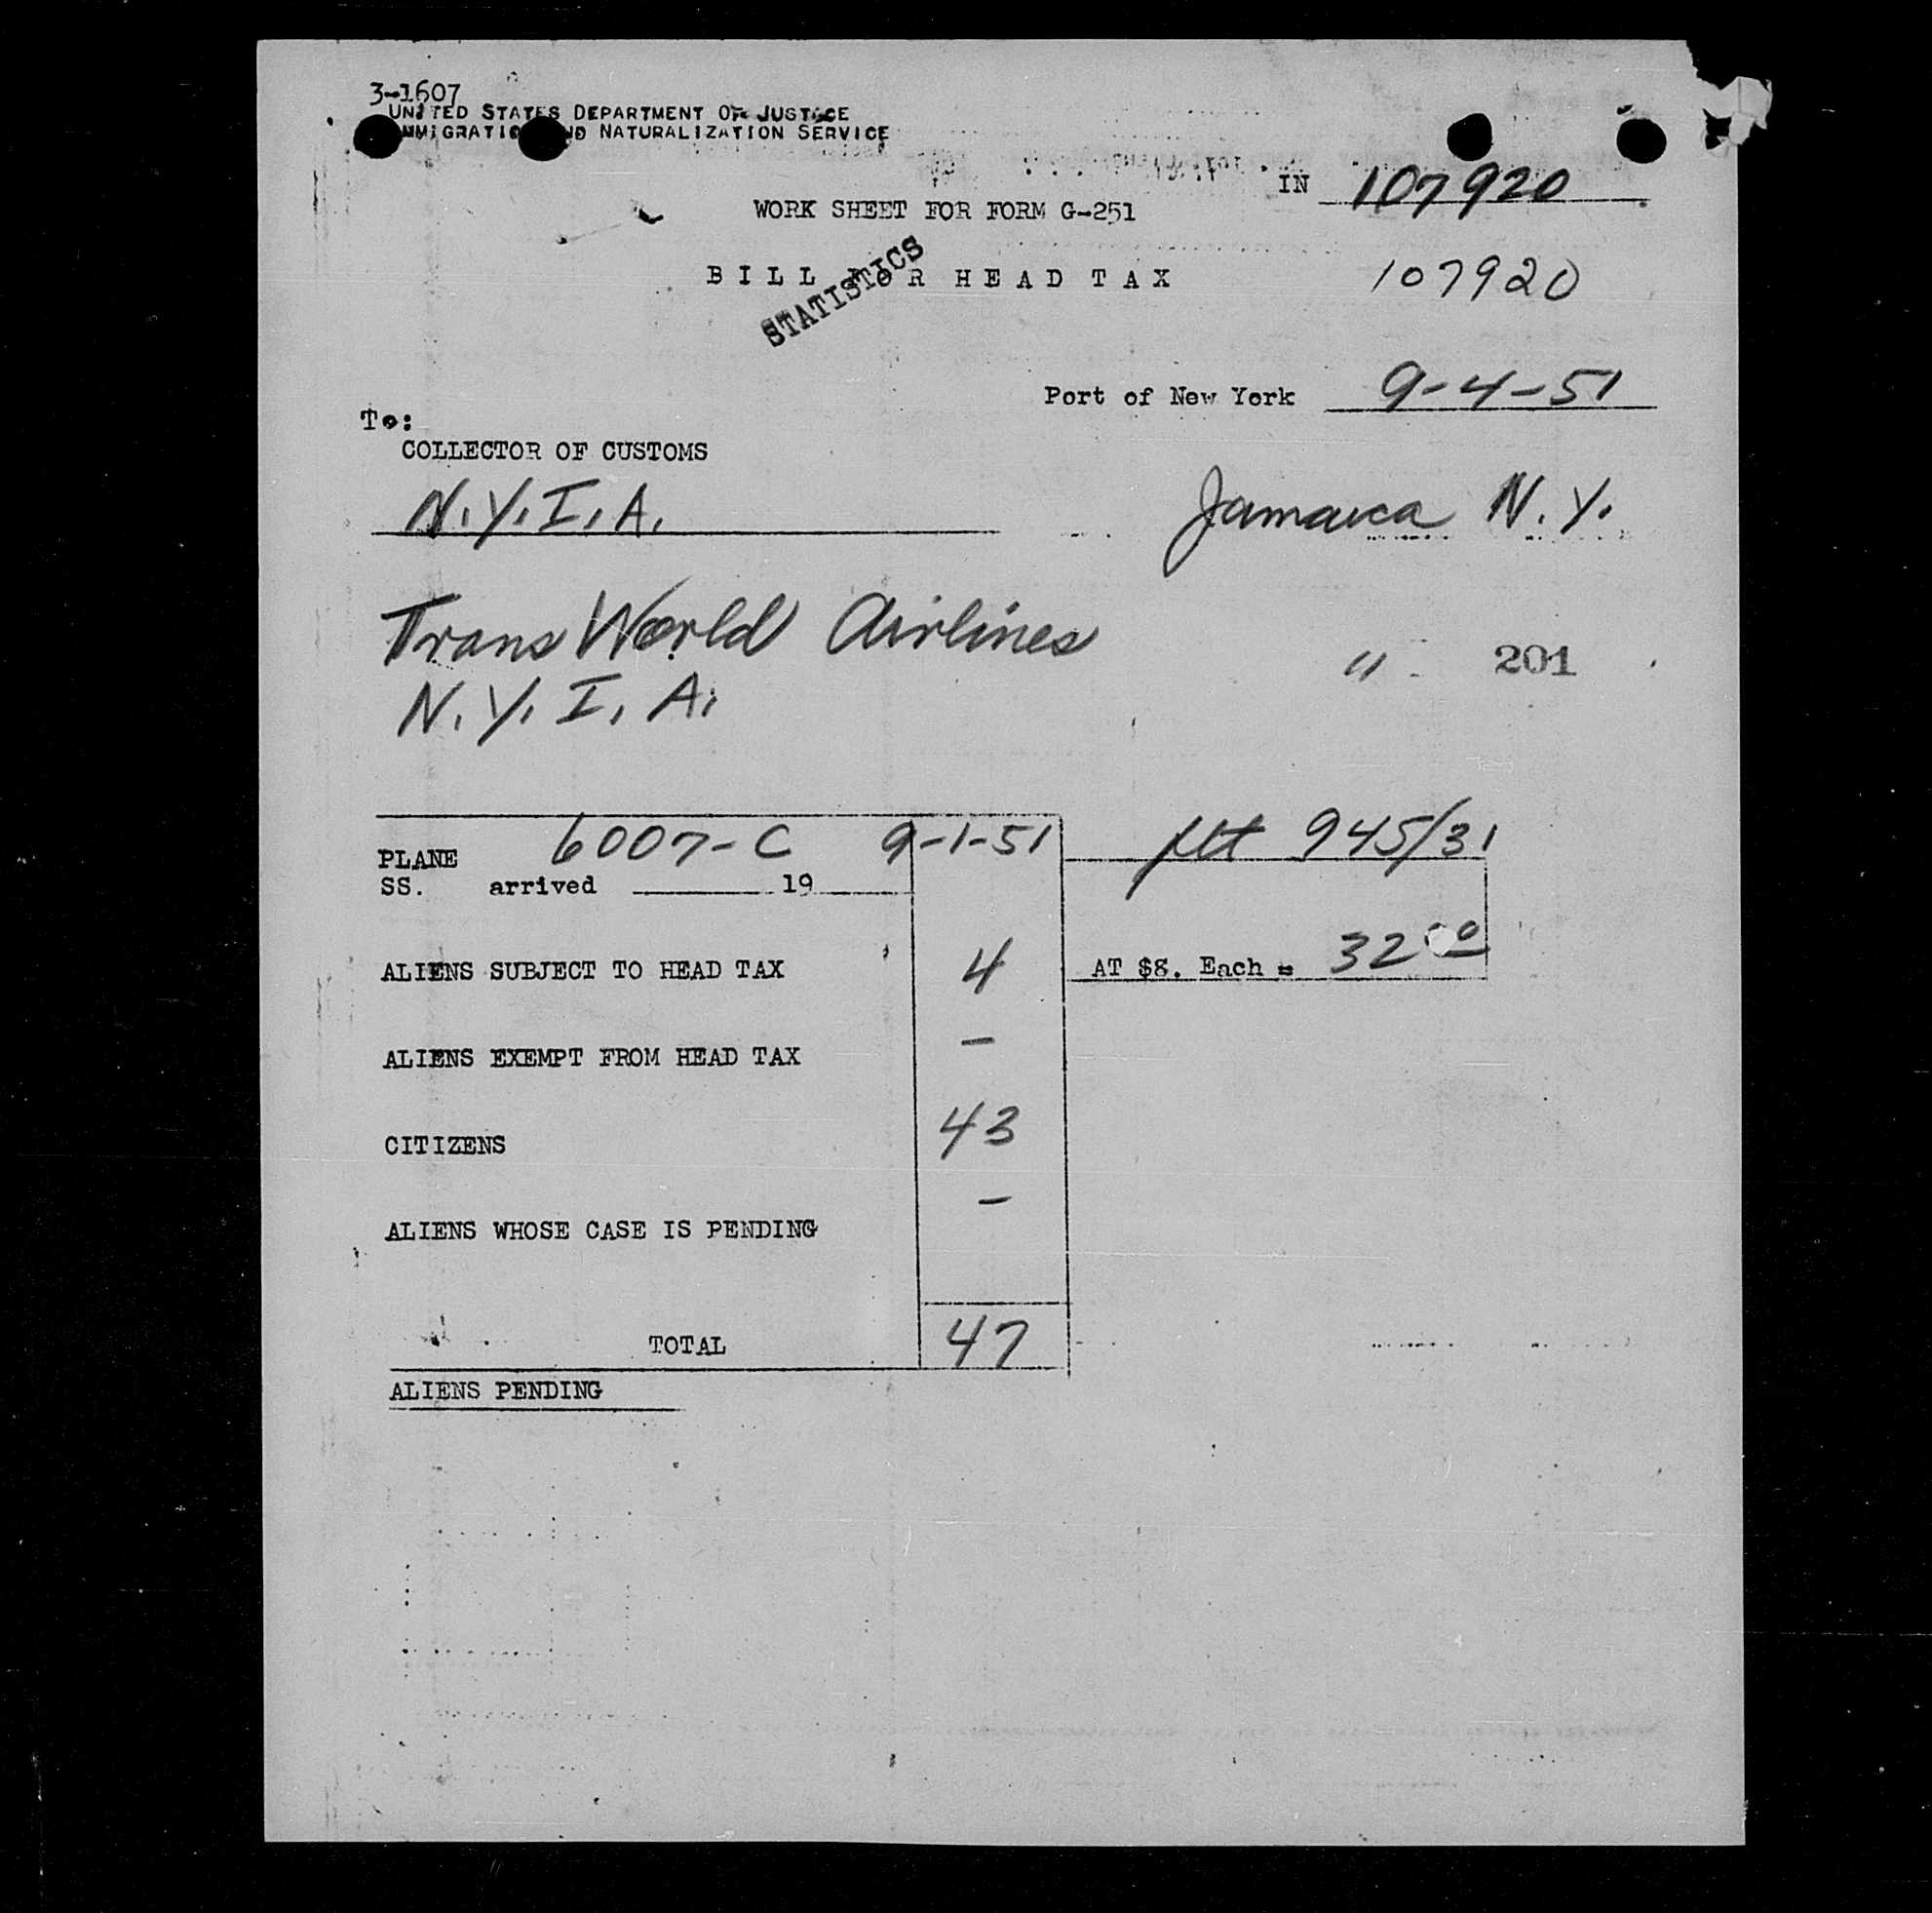 3-1607
UNITED STATES DEPARTMENT OF JUSTICE
IMMIGRATION AND NATURALIZATION SERVICE
IN 107920
WORK SHEET FOR FORM G-251
BILL FOR HEAD TAX
STATISTICS
107920
Port of New York 9-4-51
To:
COLLECTOR OF CUSTOMS
N.Y.I.A. Jamaica N.Y.
Trans World Airlines
" 201
N.Y.I.A.
PLANE 6007-C 9-1-51 flt 945/31
SS. arrived 19
ALIENS SUBJECT TO HEAD TAX 4 AT $8. Each = 32 00
ALIENS EXEMPT FROM HEAD TAX -
CITIZENS 43
ALIENS WHOSE CASE IS PENDING -
TOTAL 47
ALIENS PENDING